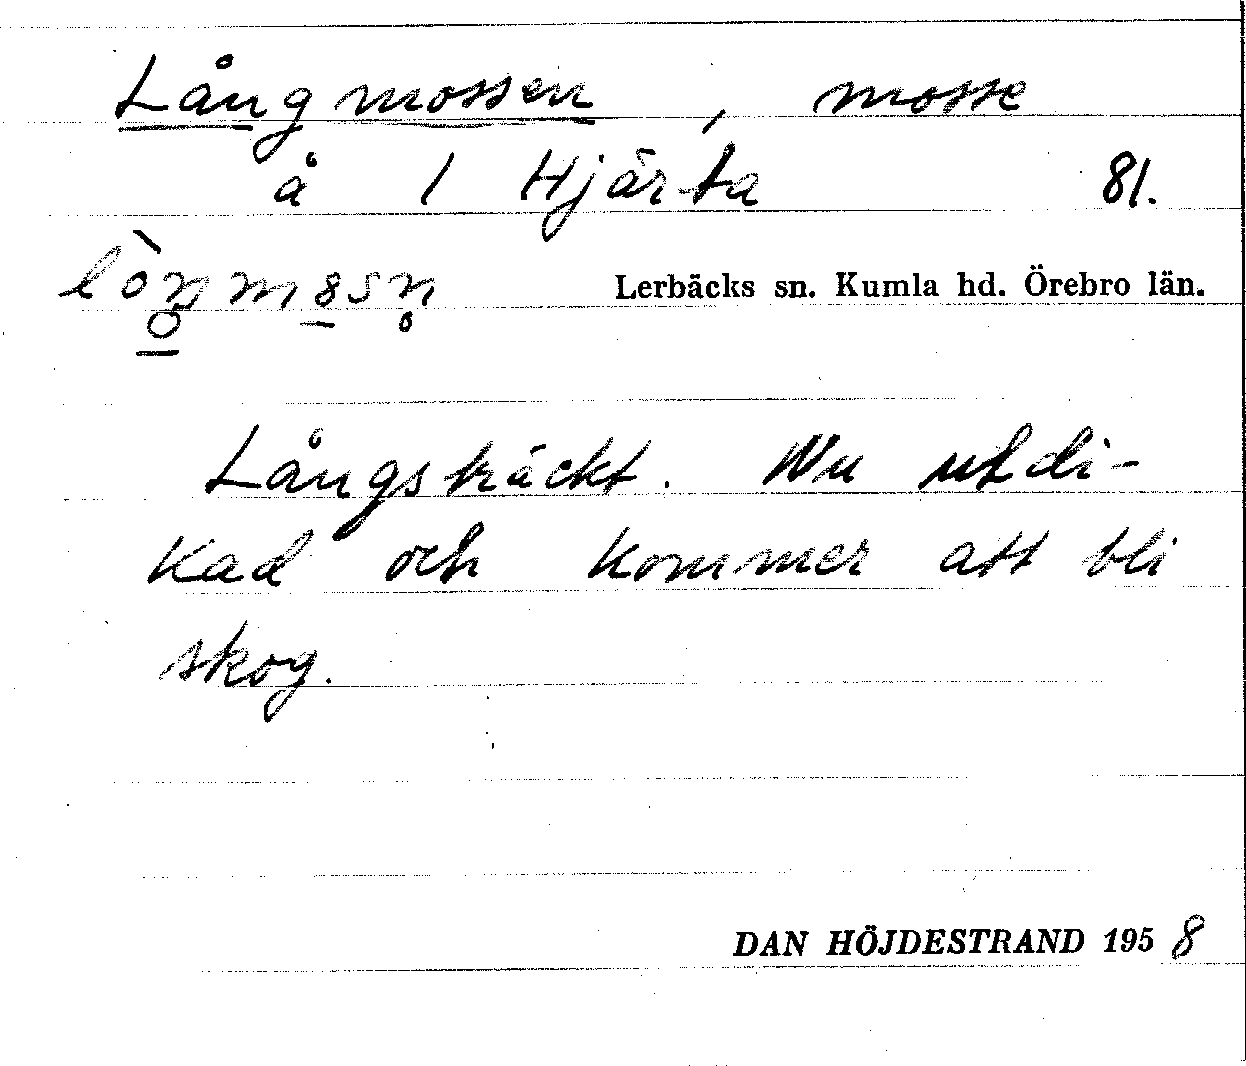 Långmossen, mosse
å 1 Hjärta 81.
Lerbäcks sn. Kumla hd. Örebro län.
Långsträckt. Nu utdi-
kad och kommer att bli
skog.
DAN HÖJDESTRAND 1958